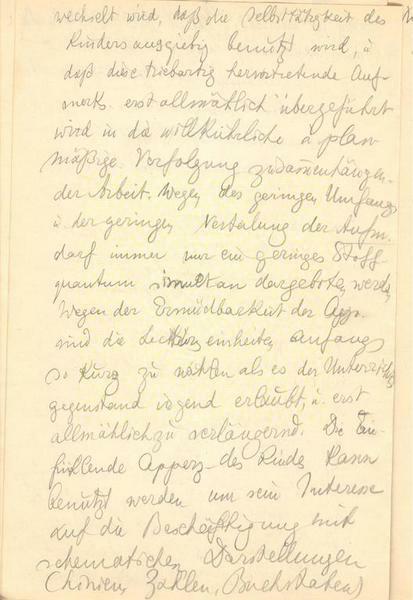 wechselt wird, daß die Selbsttätigkeit des
Kindes ausgiebig benutzt wird, u
daß diese triebartig hervortretende Auf-
merks. erst allmählich übergeführt
wird in die willkührliche u plan-
mäßige Verfolgung zusammenhängen-
der Arbeit. Wegen des geringen Umfangs
u der geringen der Aufm.
darf immer nur ein geringes Stoff-
quantum simultan dargeboten werden
Wegen der Ermüdbarkeit der App.
sind die Lektionseinheiten anfangs
so kurz zu wählen als es der Unterrichts
gegenstand irgend erlaubt, u. erst
allmählich zu verlängernd. Die Ein-
fühlende Apperz. des Kindes kann
benutzt werden um sein Interesse
auf die Beschäftigung mit
schematischen Darstellungen
(Linien, Zahlen, Buchstaben)